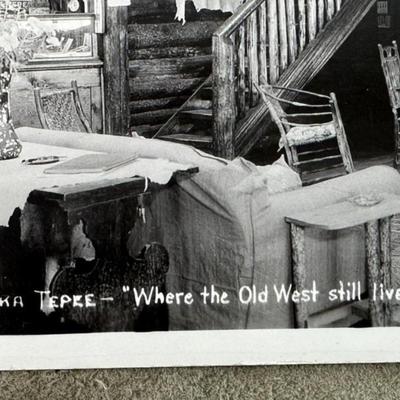 KA TEPEE – "Where the Old West still live